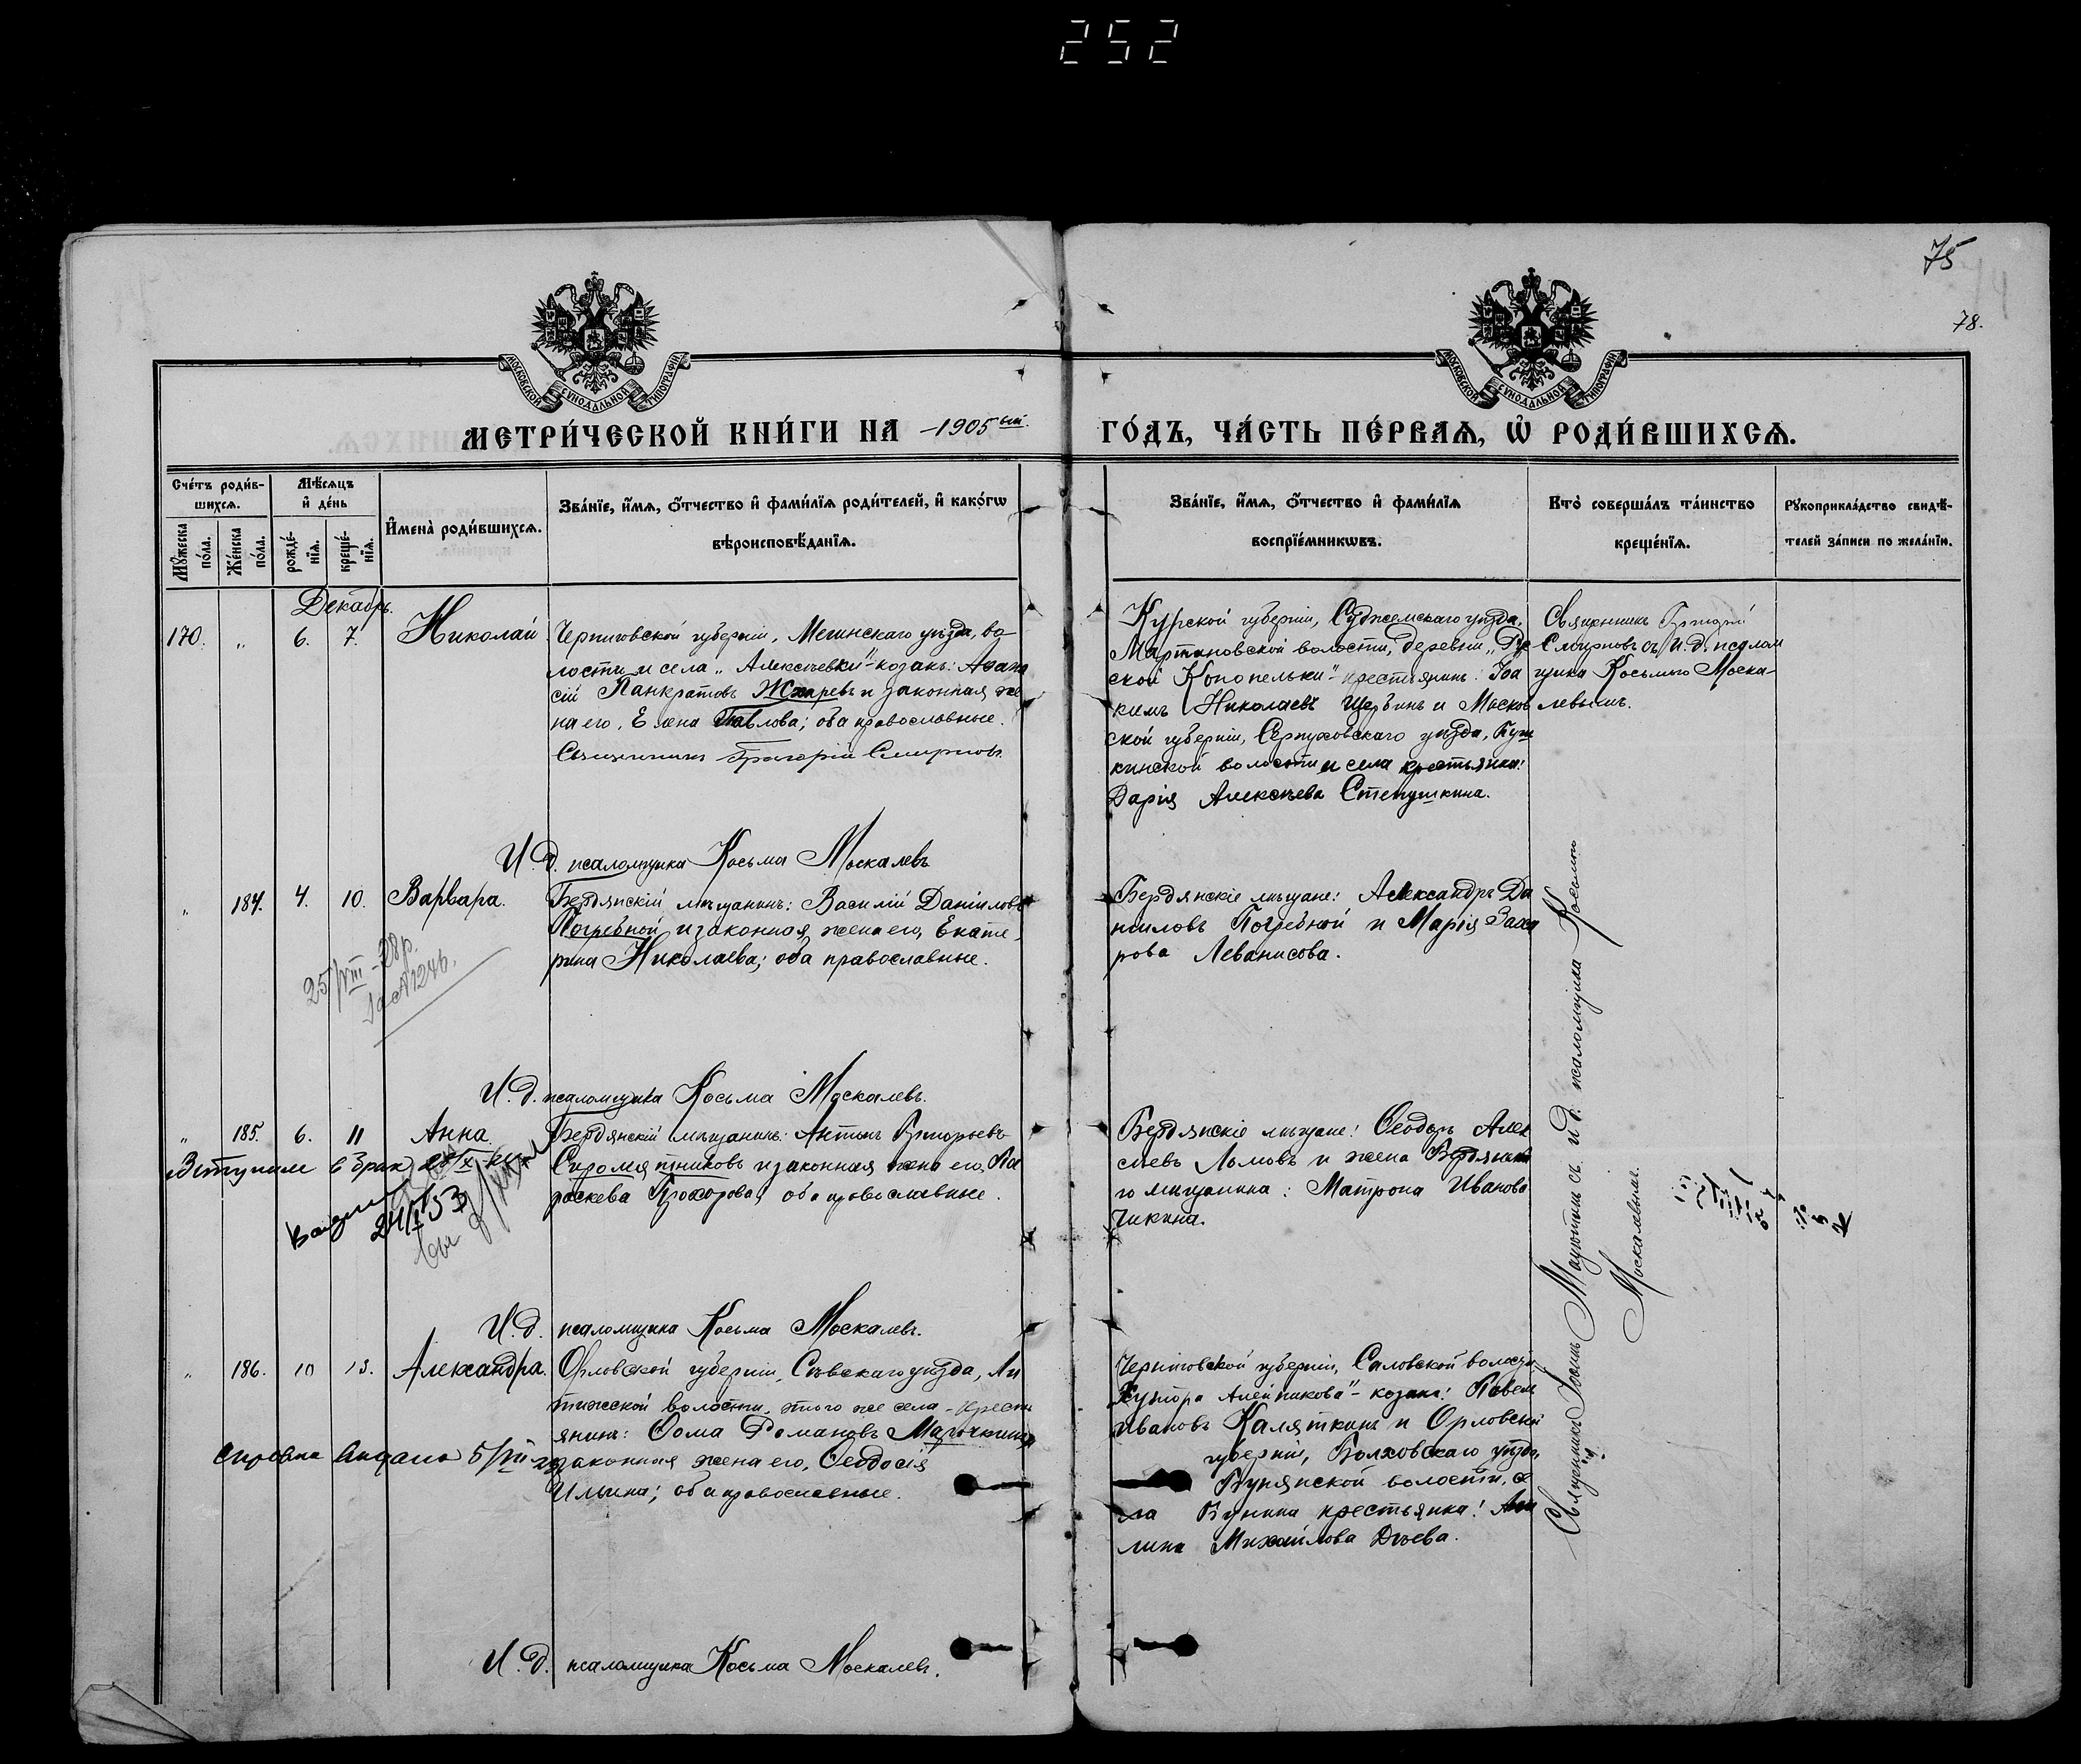 252
75
78.
МОСКОВСКОЙ СѴНОДАЛЬНОЙ ТИПОГРАФІИ
МОСКОВСКОЙ СѴНОДАЛЬНОЙ ТИПОГРАФІИ
МЕТРИ́ЧЕСКОЙ КНИ́ГИ НА -1905ый.
ГО́ДЪ, ЧА́СТЬ ПЕ́РВАЯ, Ѡ҆ РОДИ́ВШИХСЯ.
Сче́тъ роди́в-
шихся.
Мѣ́сяцъ
и҆ де́нь
Мꙋ́жеска по́ла.
Же́нска по́ла.
рожде́-
нїя.
креще́-
нїя.
И҆мена̀ роди́вшихся.
Зва́нїе, и҆́мя, ѻ҆́тчество и҆ фами́лїя роди́телей, и҆ како́гѡ
вѣроисповѣ́данїя.
Зва́нїе, и҆́мя, ѻ҆́тчество и҆ фами́лїя
воспрїе́мникѡвъ.
Кто̀ соверша́лъ та́инство
креще́нїя.
Рꙋкоприкла́дство свидѣ́-
телей за́писи по жела́нїю.
Декабрь.
170. " 6. 7. Николай
Черниговской губерніи, Мглинскаго уѣзда, во
лости и села „Алексѣевки"-козакъ: Аѳана
сій Панкратовъ Жхаревъ и законная же
на его, Елена Павлова; оба православные.
Священникъ Григорій Смирновъ.
Курской губерніи, Суджанскаго уѣзда,
Мартыновской волости, деревни „Рус
ской Конопельки"-крестьянинъ: Іоа
кимъ Николаевъ Щербинъ и Москов
ской губерніи, Серпуховскаго уѣзда, Пуш
кинской волости и села крестьянка:
Дарія Алексѣева Степушкина.
Священникъ Григорій
Смирновъ съ И. д. псалом
щика Косьмою Моска-
левымъ.
И. д. псаломщика Косьма Москалевъ
" 184. 4. 10. Варвара.
Бердянскій мѣщанинъ: Василій Даніиловъ
Погребной и законная жена его, Екате-
рина Николаева; оба православные.
25/VIII-28р.
за №1246.
Бердянскіе мѣщане: Александръ Да
ніиловъ Погребной и Марія Заха
рова Леванисова.
И. д. псаломщика Косьма Москалевъ.
" 185. 6. 11 Анна.
Бердянскій мѣщанинъ: Антонъ Григорьевъ
Сыромятниковъ и законная жена его, Па
раскева Прохорова; оба православные.
Бердянскіе мѣщане: Ѳеодоръ Алек
сѣевъ Ломовъ и жена Бердянска
го мѣщанина: Матрона Иванова
Чикина.
И. д. псаломщика Косьма Москалевъ.
" 186. 10 13. Александра.
Орловской губерніи, Сѣвскаго уѣзда, Ли
тижской волости, этого же села-крестъ
янинъ: Ѳома Романовъ Марочкинъ и
законная жена его, Ѳеодосія
Ильина; оба православные.
Справка выдана 5/VII
Черниговской губерніи, Саловской волости
Хутора Алейникова"-козакъ: Павелъ
Ивановъ Каляткинъ и Орловской
губерніи, Болховскаго уѣзда,
Бунинской волости, се
ла Бунина крестьянка: Аки
лина Михайлова Дѣева.
Священникъ Іоаннъ Матютинъ съ и. д. псаломщика Косьмою
Москалевымъ.
И. д. псаломщика Косьма Москалевъ.